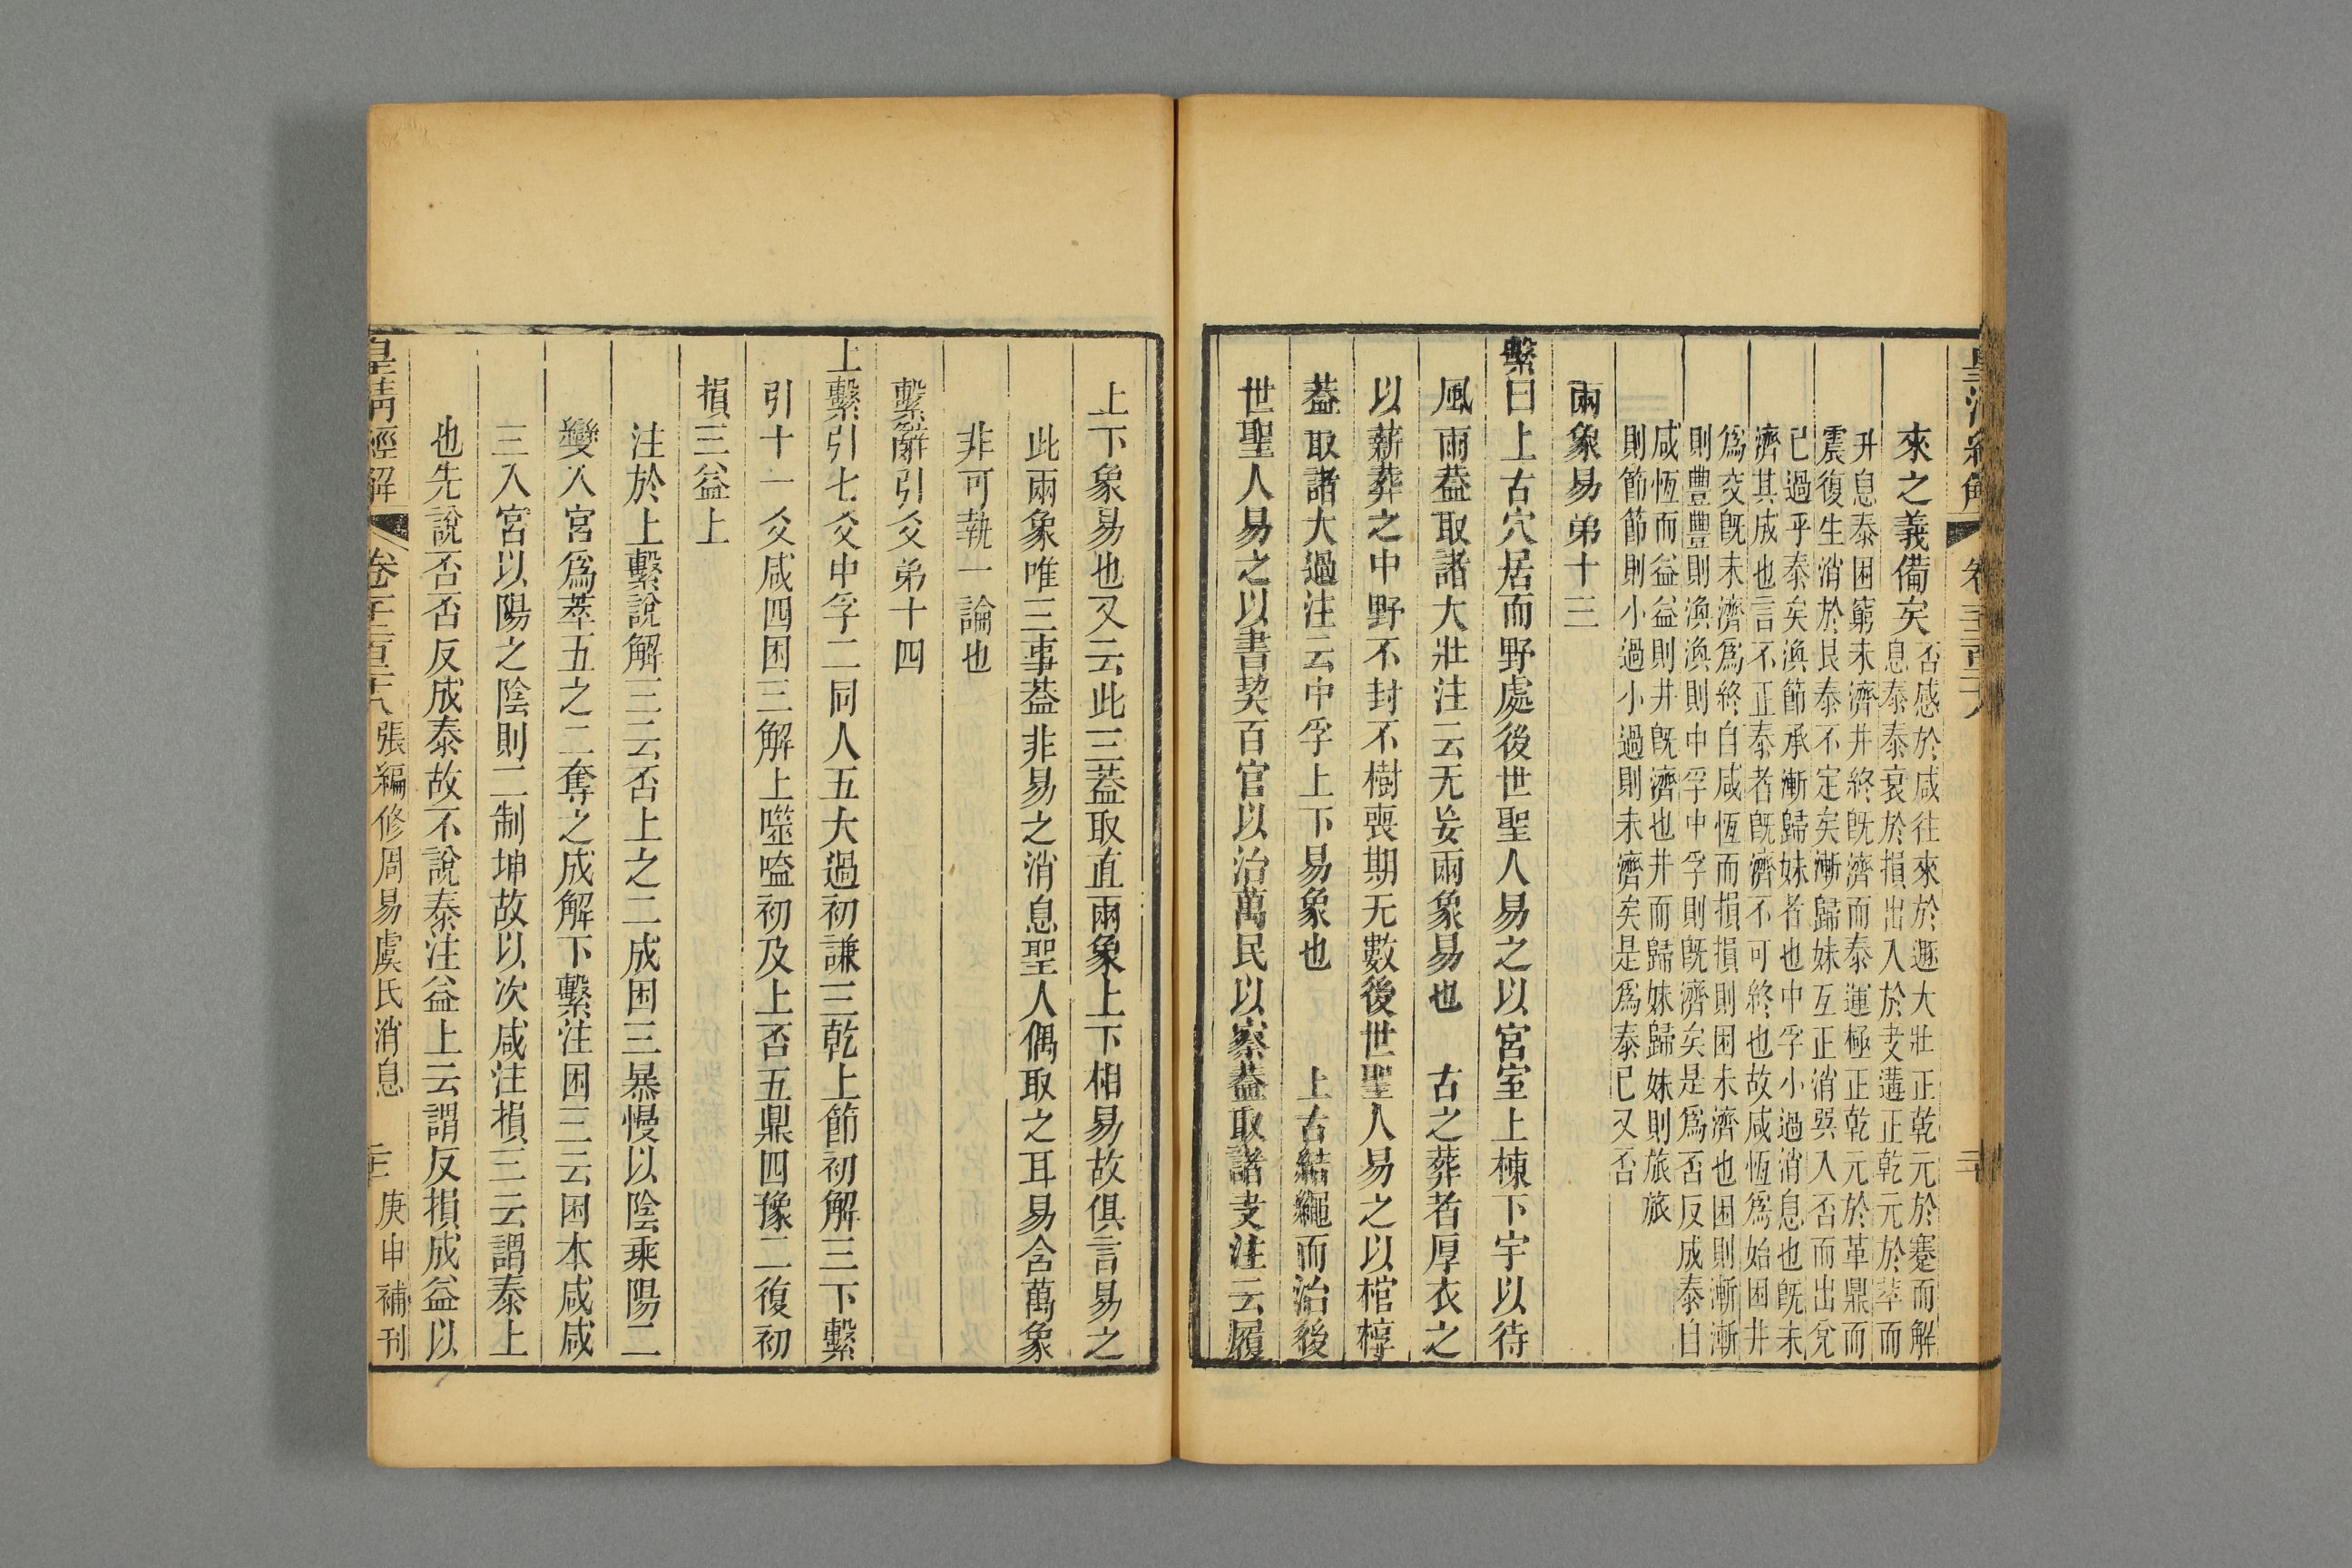 皇清經解 卷三百二十八
來之義備矣 否感於咸往來於遯大壯正乾元於蹇而解
息泰泰衰於損出入於夬遘正乾元於萃而
升息泰困窮未濟井終旣濟而泰運極正乾元於革鼎而
震復生消於艮泰不定矣漸歸妹互正消巽入否而出兌
已過乎泰矣渙節承漸歸妹者也中孚小過消息也旣未
濟其成也言不正泰者旣濟不可終也故咸恆爲始困井
爲交旣未濟爲終自咸恆而損損則困未濟也困則漸漸
則豐豐則渙渙則中孚中孚則旣濟矣是爲否反成泰自
咸恆而益益則井旣濟也井而歸妹歸妹則旅旅
則節節則小過小過則未濟矣是爲泰已又否
兩象易弟十三
繫曰上古穴居而野處後世聖人易之以宮室上棟下宇以待
風雨葢取諸大壯注云无妄兩象易也 古之葬者厚衣之
以薪葬之中野不封不樹喪期无數後世聖人易之以棺椁
葢取諸大過注云中孚上下易象也 上古結繩而治後
世聖人易之以書契百官以治萬民以察葢取諸夬注云履
上下象易也又云此三葢取直兩象上下相易故俱言易之
此兩象唯三事葢非易之消息聖人偶取之耳易含萬象
非可執一論也
繫辭引爻弟十四
上繫引七爻中孚二同人五大過初謙三乾上節初解三下繫
引十一爻咸四困三解上噬嗑初及上否五鼎四豫二復初
損三益上
注於上繫說解三云否上之二成困三暴慢以陰乘陽二
變入宮爲萃五之二奪之成解下繫注困三云困本咸咸
三入宮以陽之陰則二制坤故以次咸注損三云謂泰上
也先說否否反成泰故不說泰注益上云謂反損成益以
皇清經解 卷三百二十八 張編修周易虞氏消息 二十一 庚申補刊